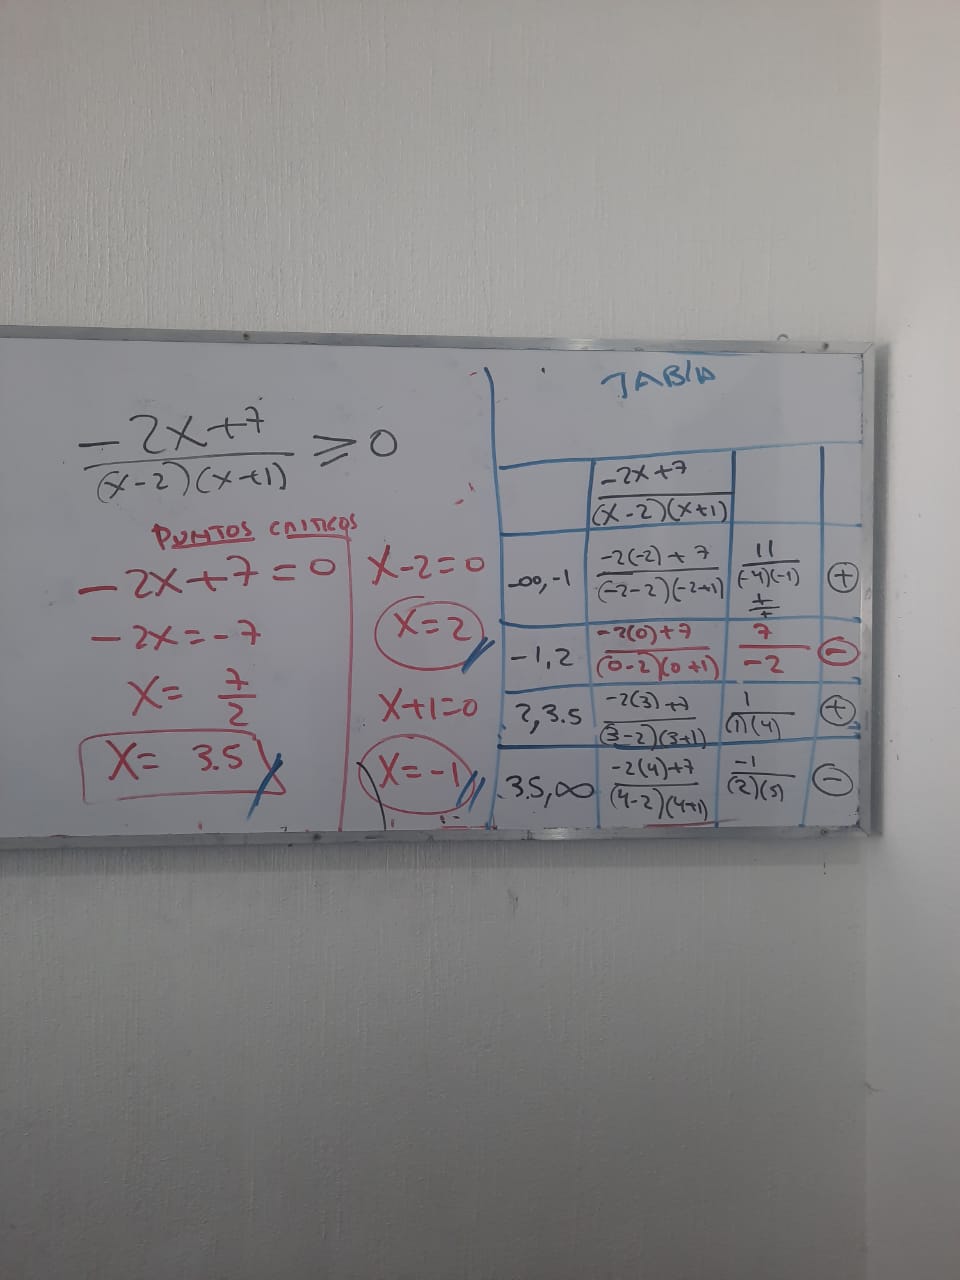 -2x+7
(x-2)(x+1)
≥ 0
PUNTOS CRITICOS
-2x+7=0
-2x=-7
x= 7/2
x= 3.5
x-2=0
x=2
x+1=0
x=-1
TABlA
-2x+7
(x-2)(x+1)
-∞,-1
-2(-2)+7
(-2-2)(-2+1)
11
(-4)(-1)
+
+
+
-1,2
-2(0)+7
(0-2)(0+1)
7
-2
-
2,3.5
-2(3)+7
(3-2)(3+1)
1
(1)(4)
+
3.5,∞
-2(4)+7
(4-2)(4+1)
-1
(2)(5)
-